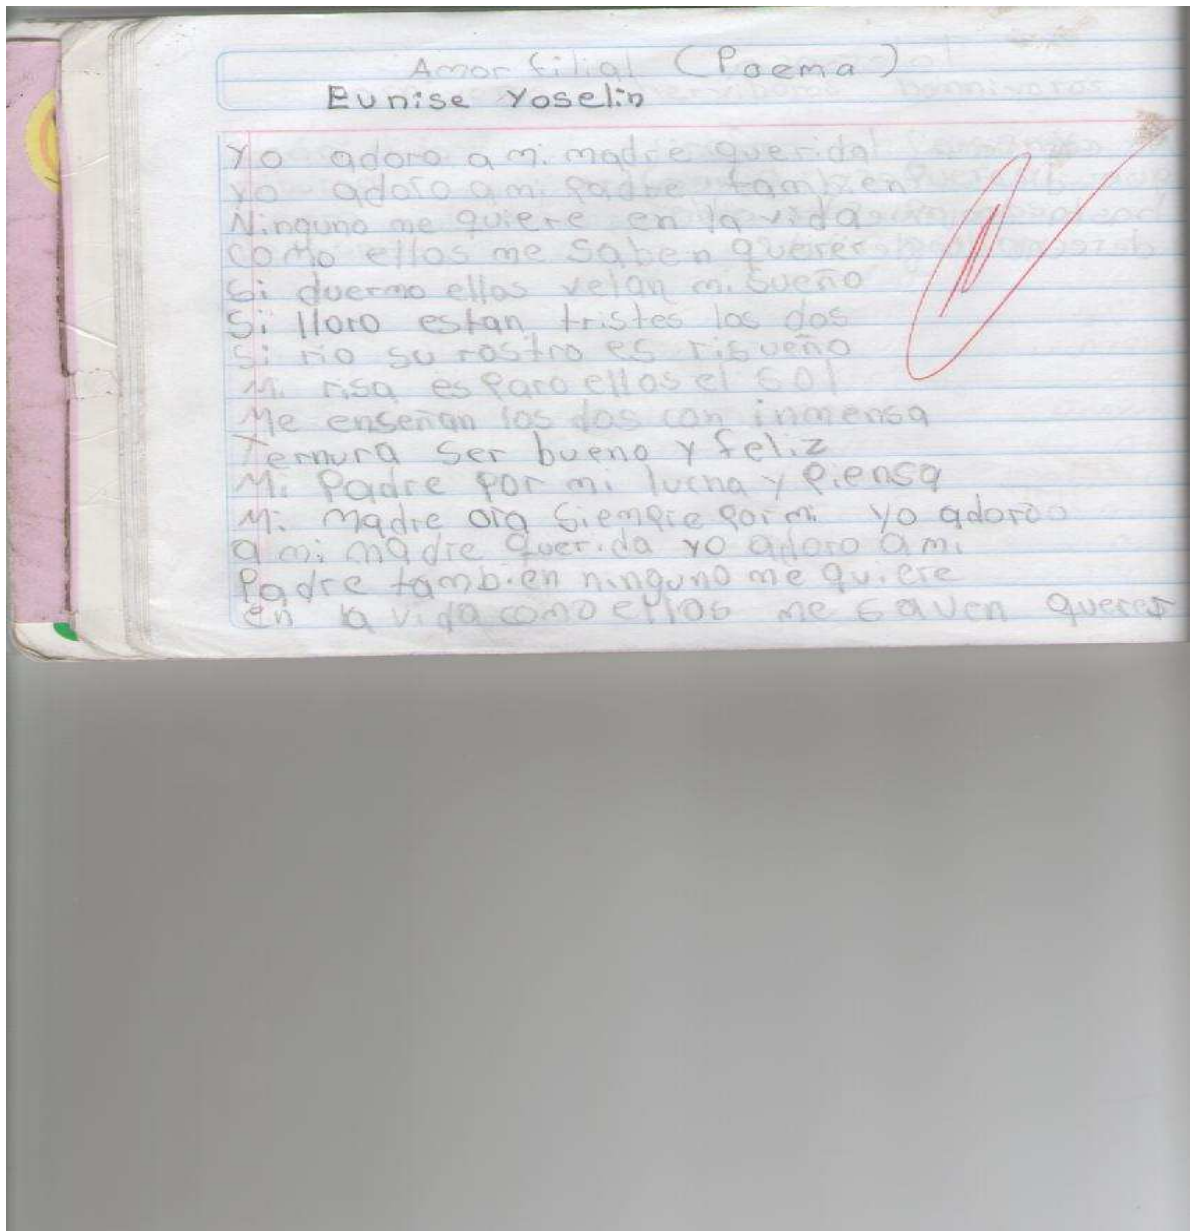 Amor filial (Poema)
Eunise Yoselin
Yo adoro a mi madre querida
yo adoro a mi padre tambien
Ninguno me quiere en la vida
como ellos me saben querer
Si duermo ellos velan mi sueño
Si lloro estan tristes los dos
Si rio su rostro es risueño
Mi risa es para ellos el sol
Me enseñan los dos con inmensa
Ternura ser bueno y feliz
Mi Padre por mi lucha y piensa
Mi madre ora siempre por mi yo adoro
a mi madre querida yo adoro a mi
Padre tambien ninguno me quiere
en la vida como ellos me saven querer